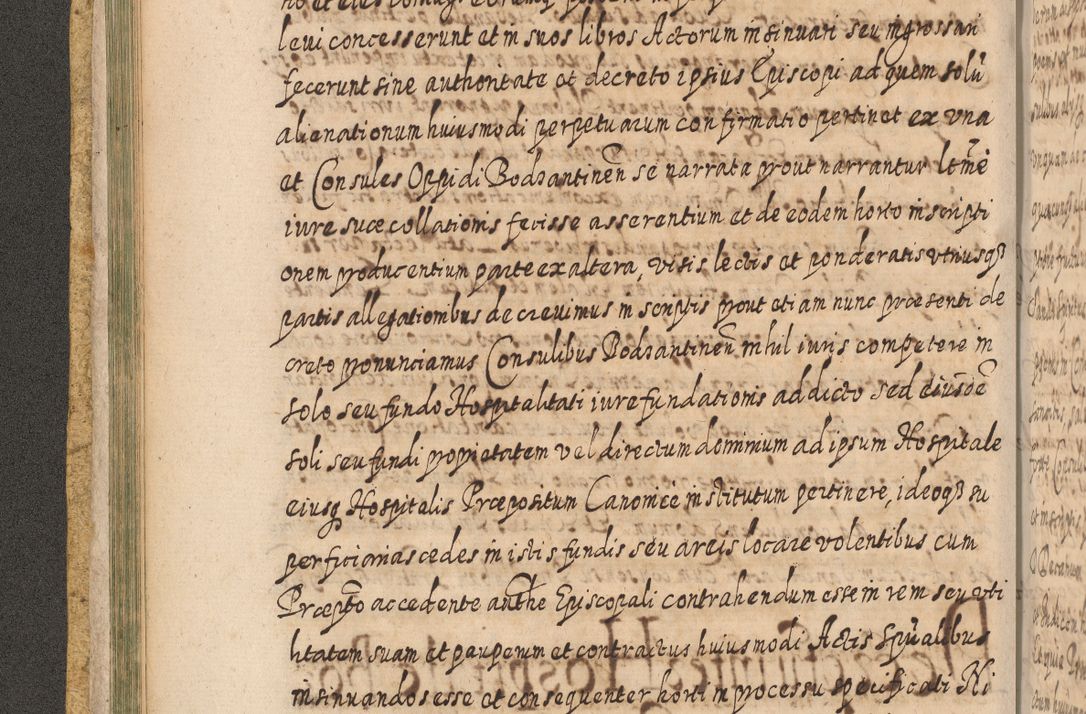 leui concesserunt et in suos libros Actorum insinuari seu ingrossari
fecerunt sine authoritate et decreto ipsius Episcopi ad quem solũ
alienationum huiusmodi perpetuarum confirmatio pertinet ex vna
et Consules Oppidi Bodzantineñ se narrata prout narrantur ltiṁe
iure suæ collationis fecisse asserentium et de eodem horto inscripti
onem producentium parte ex altera, visis lectis et ponderatis vtriusqȝ
partis allegationibus decreuimus in scriptis prout etiam nunc præsenti de
creto pronunciamus Consulibus Bodzantineñ nihil iuris competere in
solo seu fundo Hospitalitati iure fundationis addicto sed eiusdẽ
soli seu fundi proprietatem vel directum dominium ad ipsum Hospitale
eiusq Hospitalis Præpositum Canonicè institutum pertinere, ideoqȝ su
perficiarias ædes in istis fundis seu areis locare volentibus cum
Præpto accedente authe Episcopali contrahendum esse in rem seu vti
litatem suam et pauperum et contractus huiusmodi Actis Spũalibus
insinuandos esse et consequenter horti in processu specificati Ni